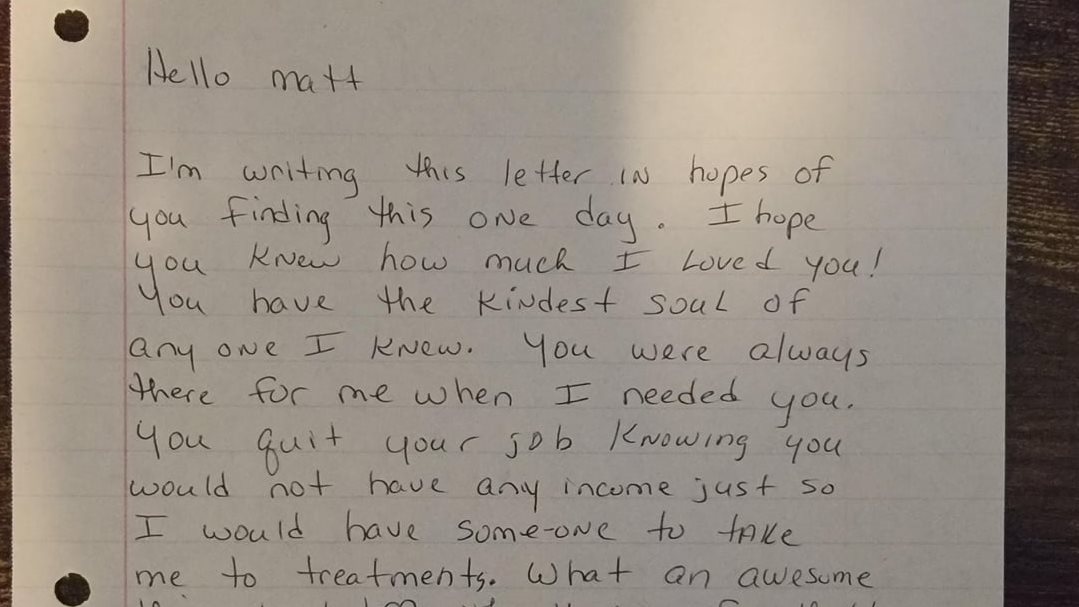 Hello matt
I'm writing this letter in hopes of
you finding this one day. I hope
you knew how much I loved you!
You have the kindest soul of
any one I knew. You were always
there for me when I needed you.
You quit your job knowing you
would not have any income just so
I would have some-one to take
me to treatments. What an awesome